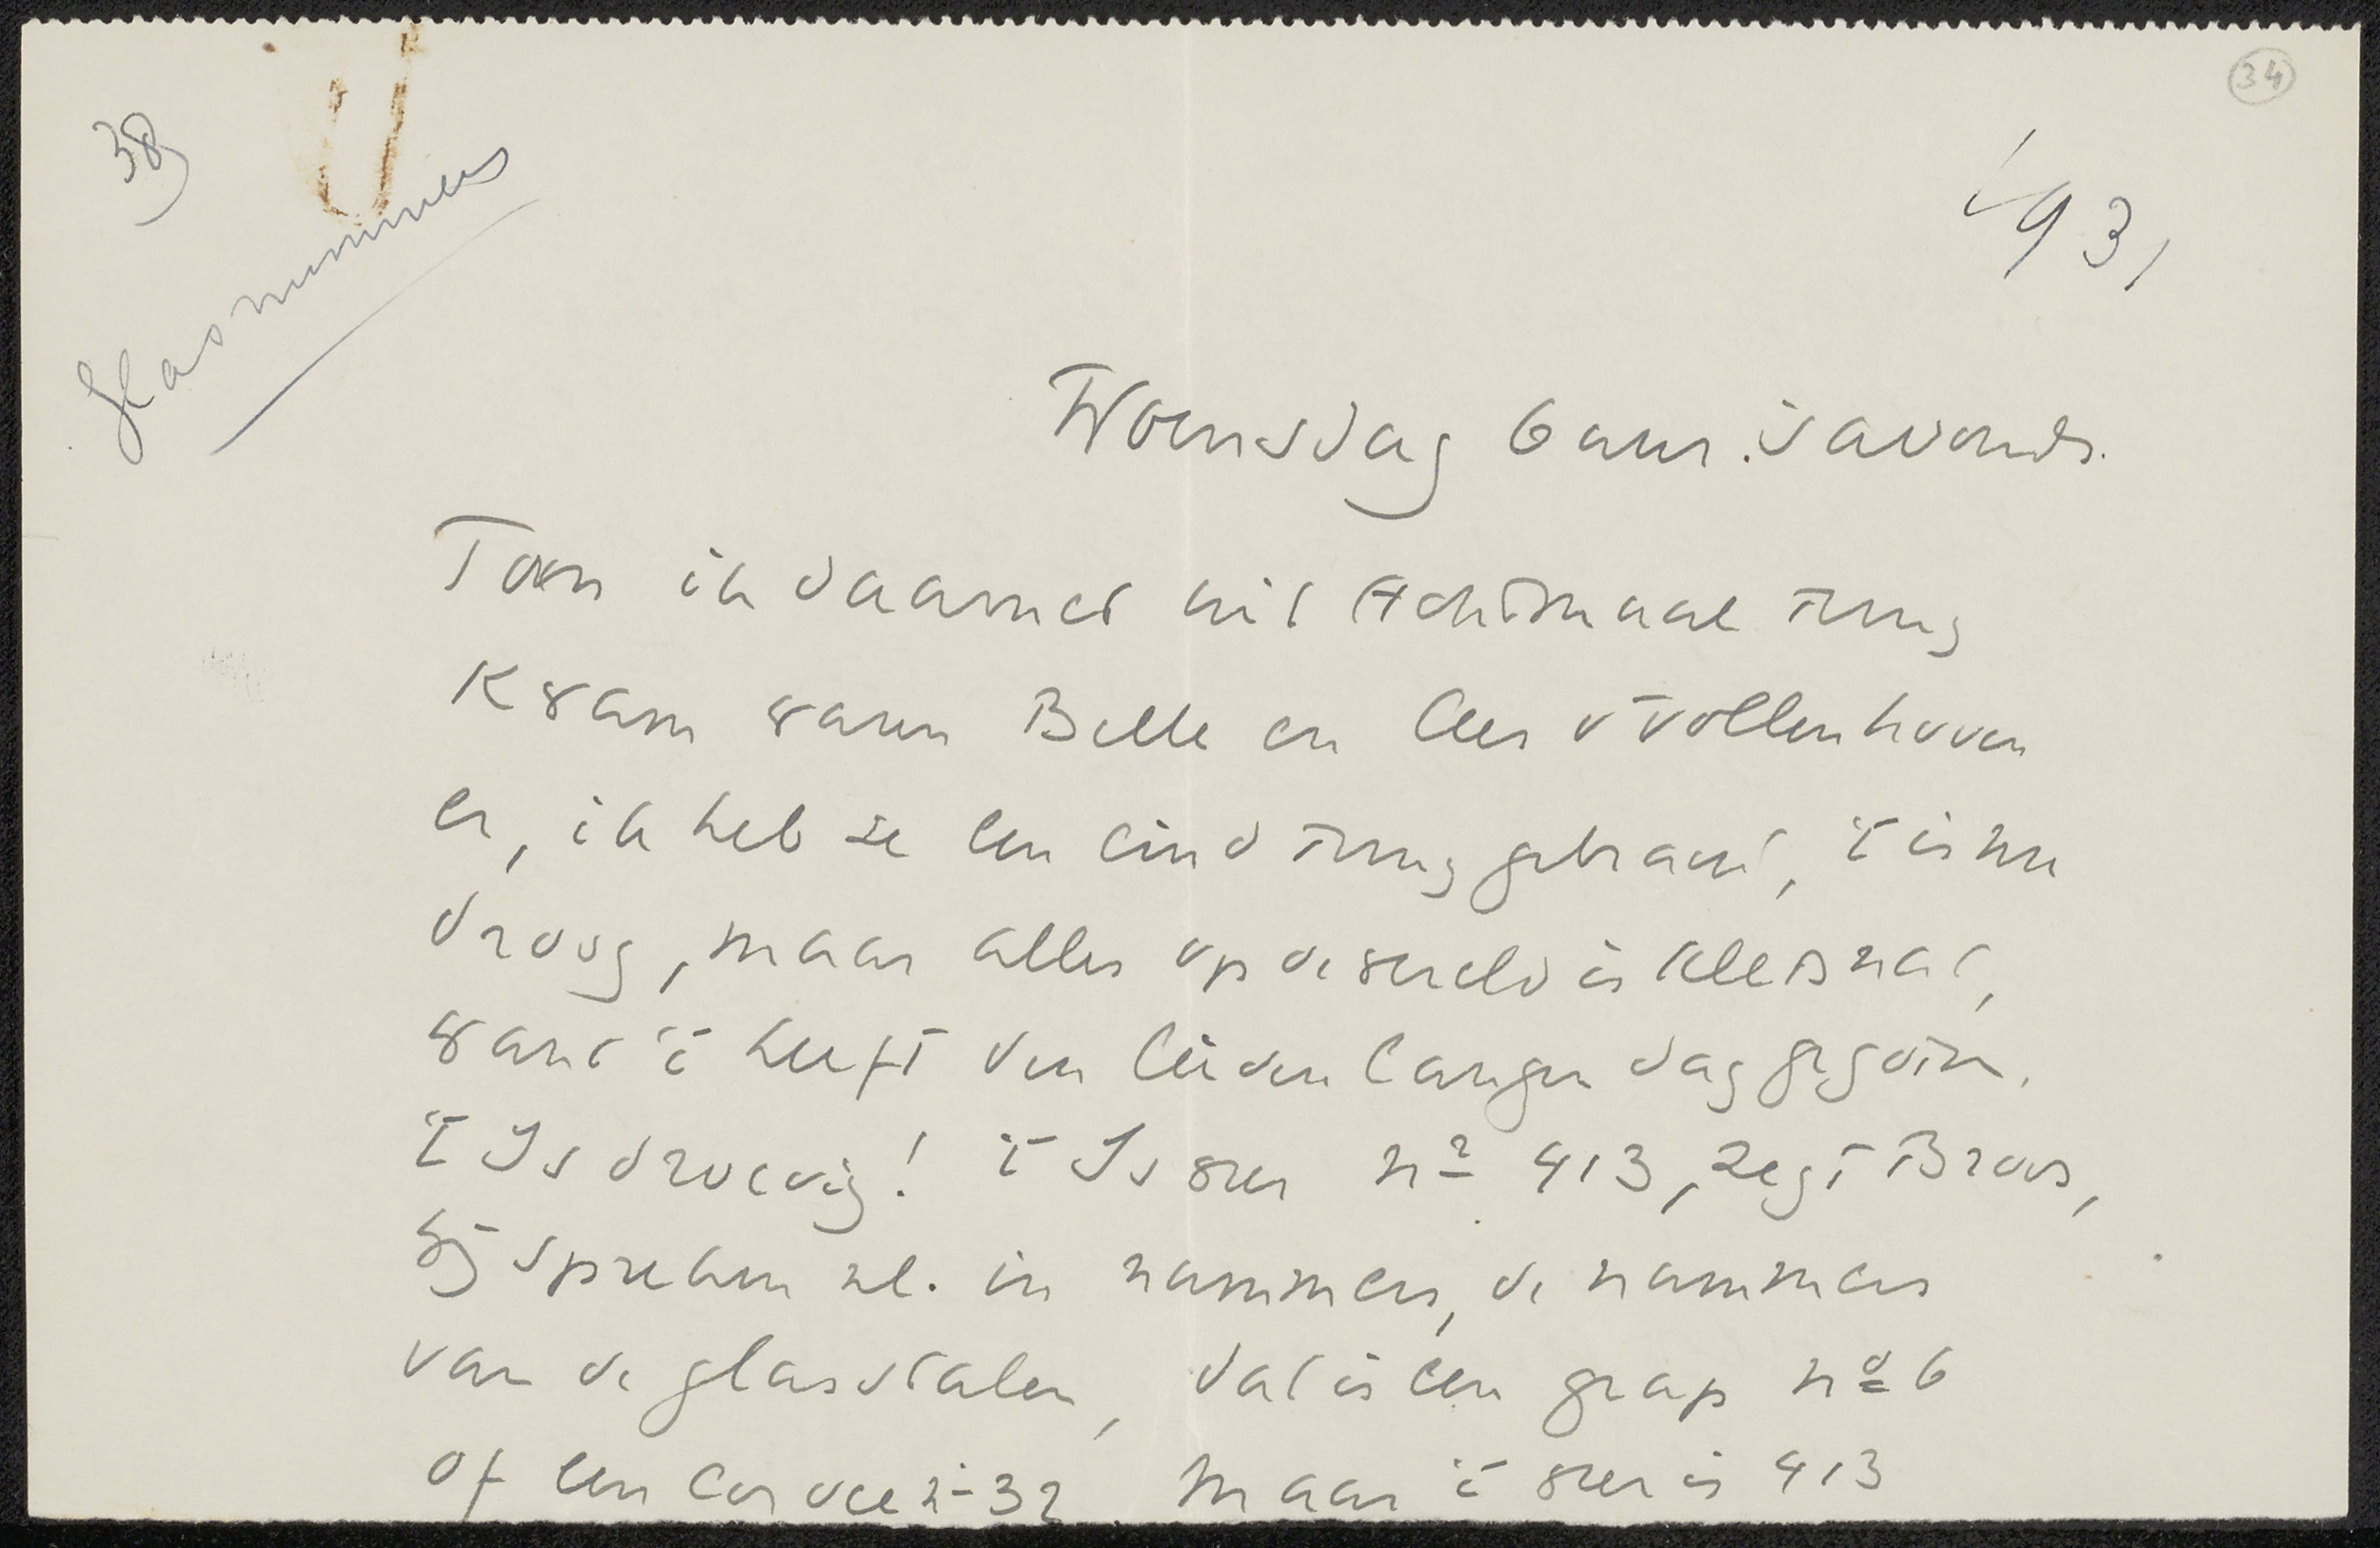 34
38)
Glasnummers
1931
Woensdag 6 uur 's avonds.
Toen ik daarnet uit Achtmaal terug
kwam waren Belle en Cees v Vollenhoven
er, ik heb ze een eind terug gebracht, 't is nu
droog, maar alles op de wereld is kletsnat,
want 't heeft den lieven langen dag gegoten.
't Is droevig! 't Is weer no 413, zegt Broos,
wij spreken nl. in nummers, de nummers
van de glasstalen, dat is een grap no 6
of een corvee n- 32 maar 't weer is 413